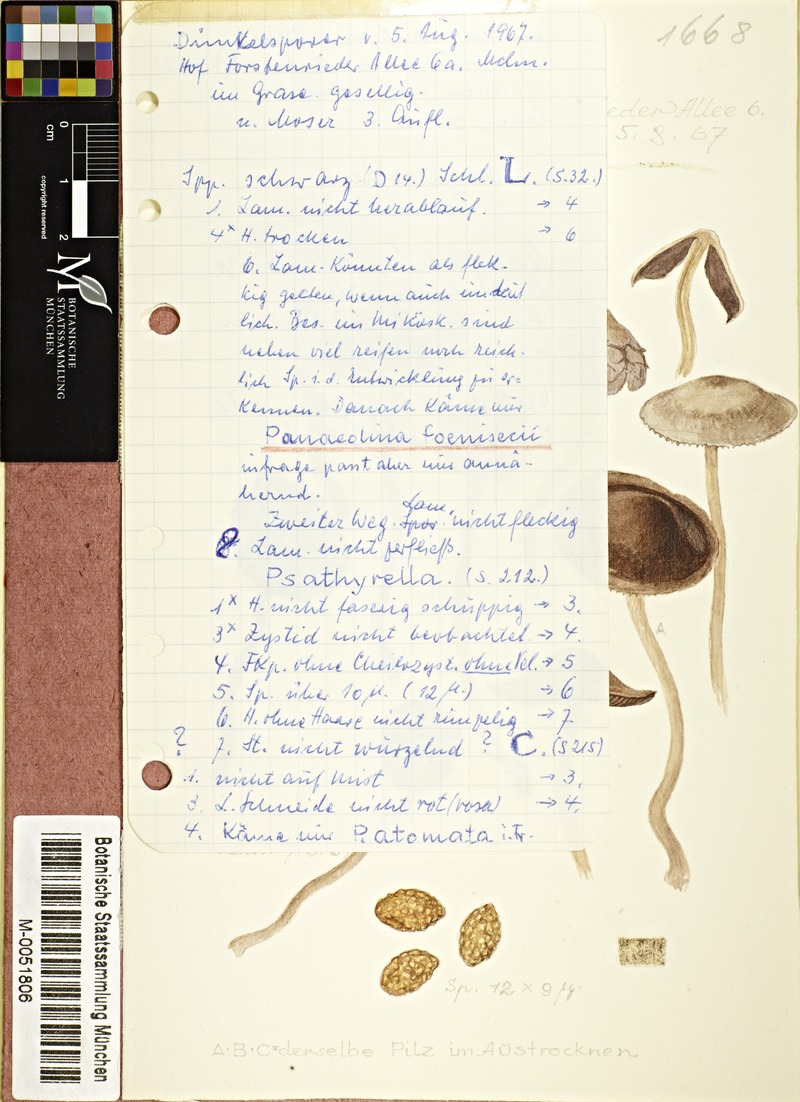 Dünkelsporer v. 5. Aug. 1967.
Hof Forstenrieder Allee 6a. Mchn.
im Grase gesellig.
n. Moser 3. Aufl.
Spp. schwarz (D 14.) Schl. L. (S.32.)
1. Lam. nicht herablauf. → 4
4x H. trocken → 6
6. Lam. Könnten als flek-
kig gelten, wenn auch undeut
lich. Bes. im Mikosk. sind
neben viel reifen noch reich-
lich Sp. i. d. Entwicklung zu er-
kennen. Danach Käme nur
Panaeolina foenisecii
infrage passt aber nur annä-
hernd.
Zweiter Weg. Lam. nicht fleckig
8. Lam. nicht zerfließ.
Psathyrella. (S. 212.)
1x H. nicht faserig schuppig → 3.
3x Zystid nicht beobachtet → 4.
4. FKp. ohne Cheilozyst. ohne Vel. → 5
5. Sp. über 10 µ. (12 µ.) → 6
6. H. ohne Haare nicht runzelig → 7.
? 7. St. nicht würzelnd ? C. (S 215)
1. nicht auf Mist → 3.
3. L. Schneide nicht rot (rosa) → 4.
4. Käme nur P. atomata i. Fr.
1668
ieder Allee 6.
5. 8. 67
A
Sp. 12 × 9 µ
A·B·C=derselbe Pilz im Austrocknen
0
1
2
cm
copyright reserved
BOTANISCHE
STAATSSAMMLUNG
MÜNCHEN
Botanische Staatssammlung München
M-0051806